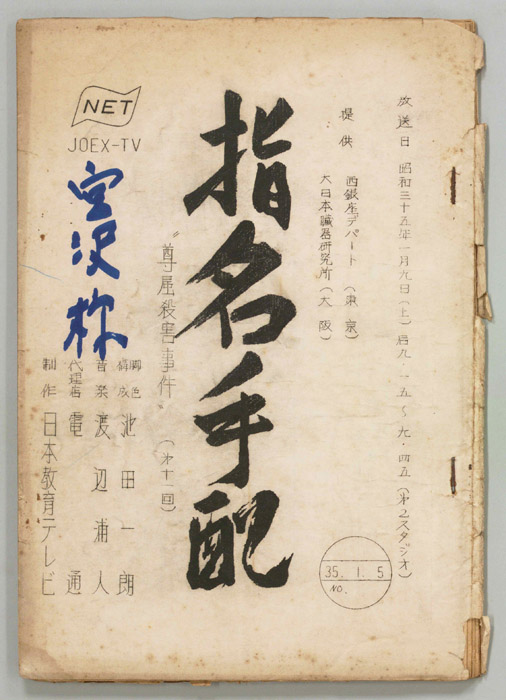 放送日 昭和三十五年一月九日(土) 后九・一五~九・四五(第2スタジオ)
提供 西銀座デパート(東京)
大日本臓器研究所(大阪)
指名手配
"尊属殺害事件(第十一回)
脚色 池田一朗
構成
音楽 渡辺浦人
代理店 電通
制作 日本教育テレビ
NET
JOEX-TV
宮沢
35. 1. 5
NO.